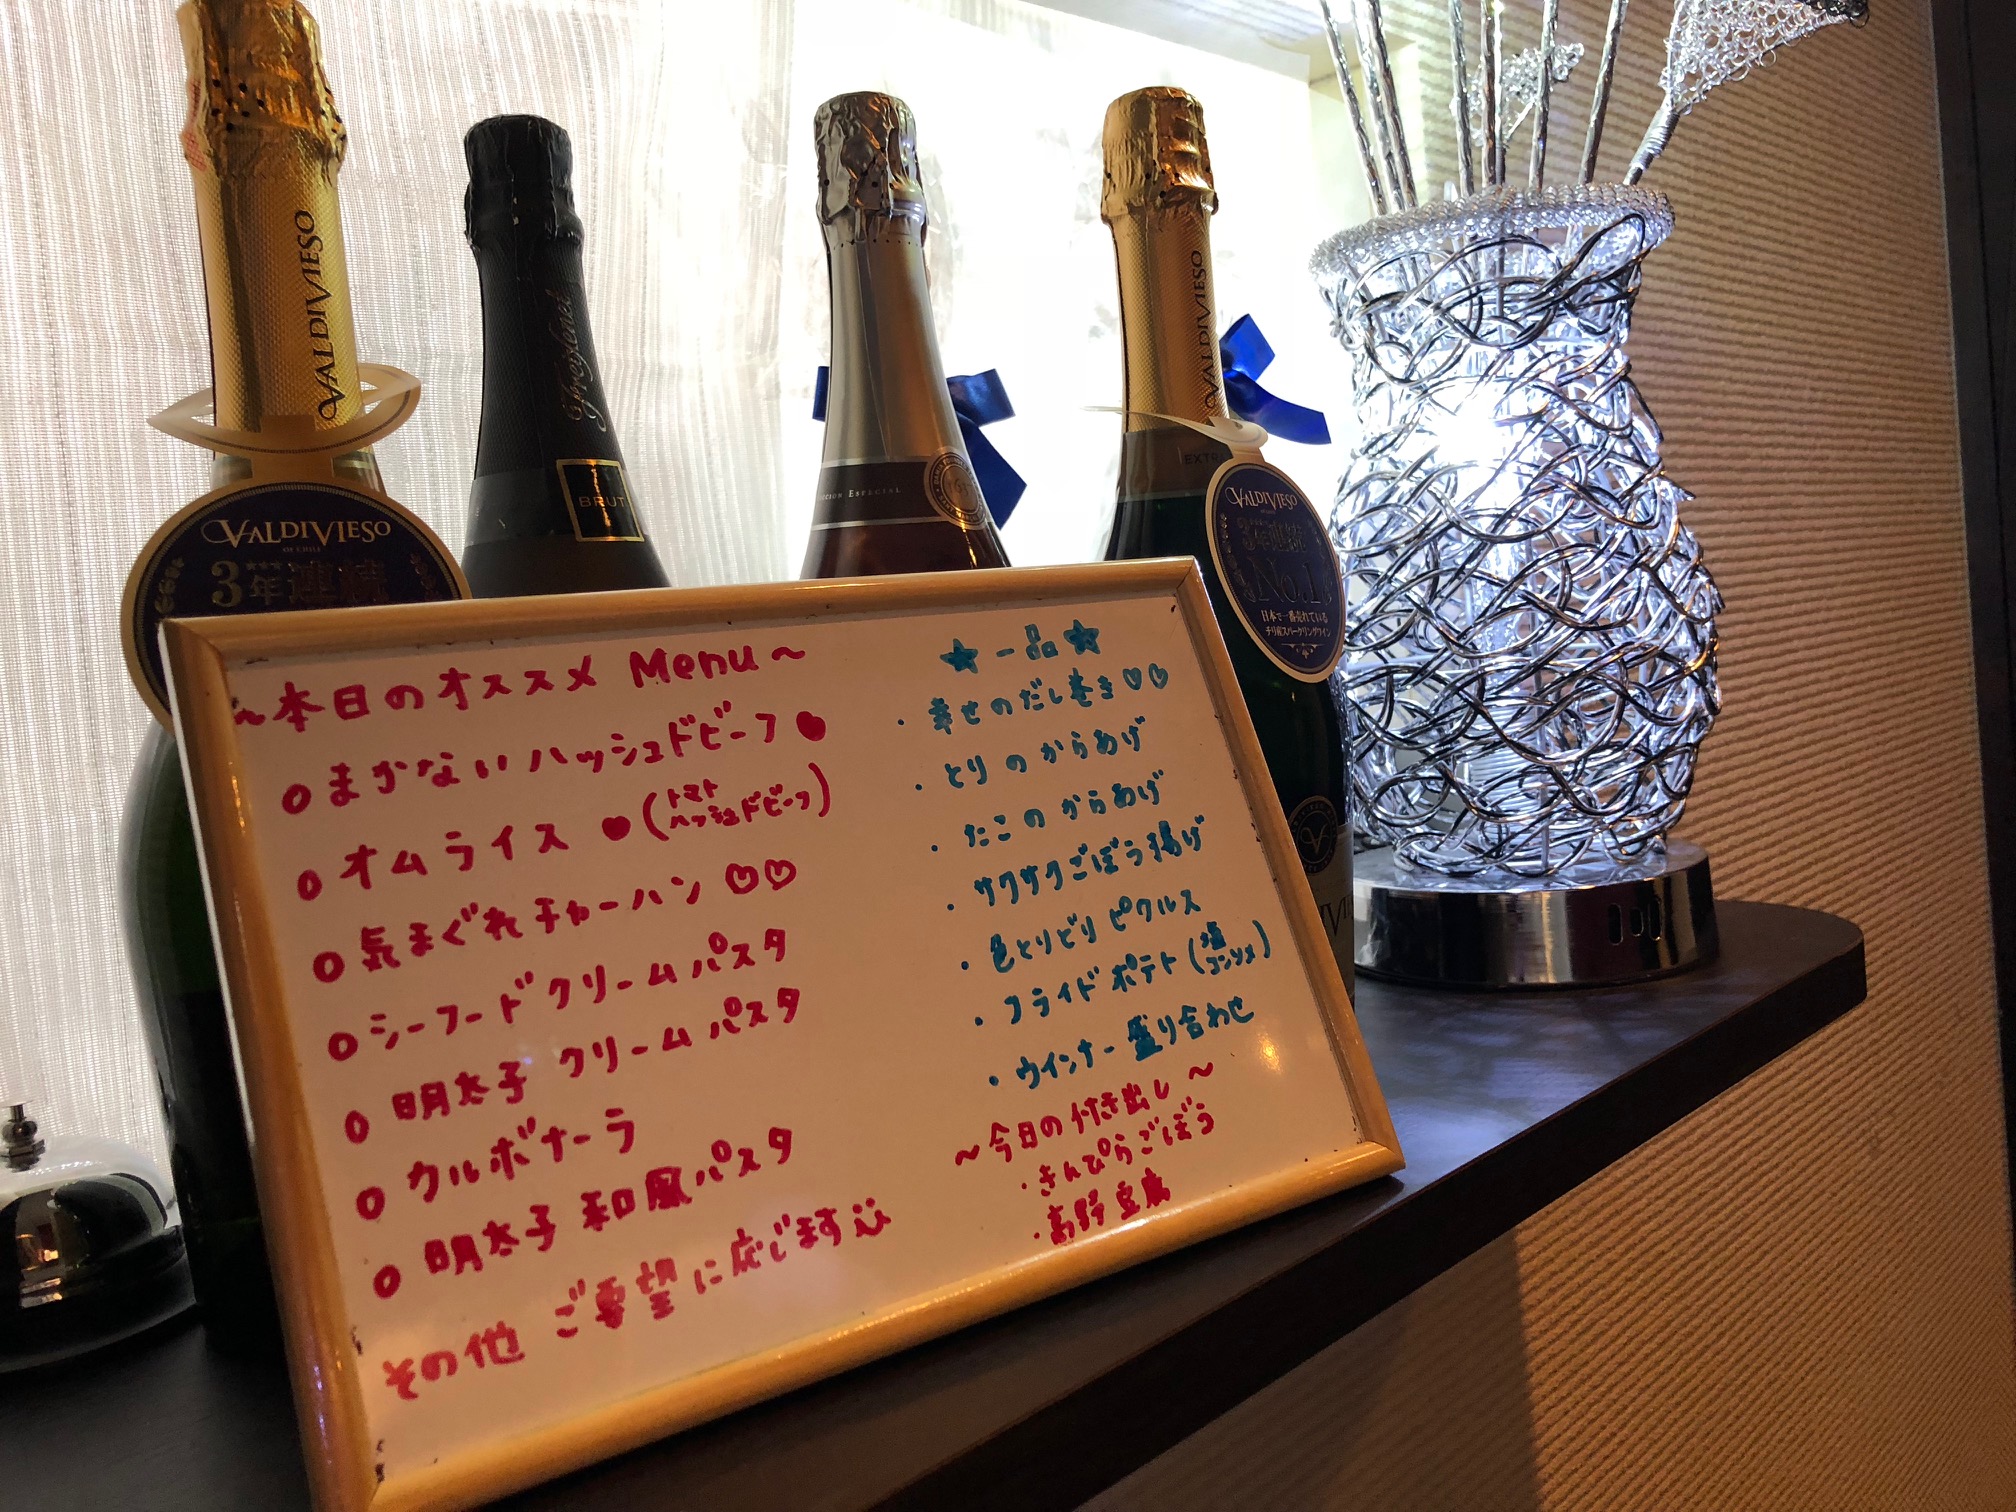 VALDIVIESO
Freixenet
BRUT
ESPECIAL
VALDIVIESO
EXTRA
VALDIVIESO
OF CHILE
3年連続
VALDIVIESO
3年連続
No.1
日本で一番売れている
チリ産スパークリングワイン
~本日のオススメ Menu~
○まかないハッシュドビーフ♥
○オムライス♥(トマトハッシュドビーフ)
○気まぐれチャーハン♡♡
○シーフードクリームパスタ
○明太子クリームパスタ
○カルボナーラ
○明太子和風パスタ
その他 ご要望に応じます
★一品★
・幸せのだし巻き♡♡
・とりのからあげ
・たこのからあげ
・サクサクごぼう揚げ
・色とりどりピクルス
・フライドポテト(塩 コンソメ)
・ウインナー盛り合わせ
~今日の付き出し~
・きんぴらごぼう
・高野豆腐